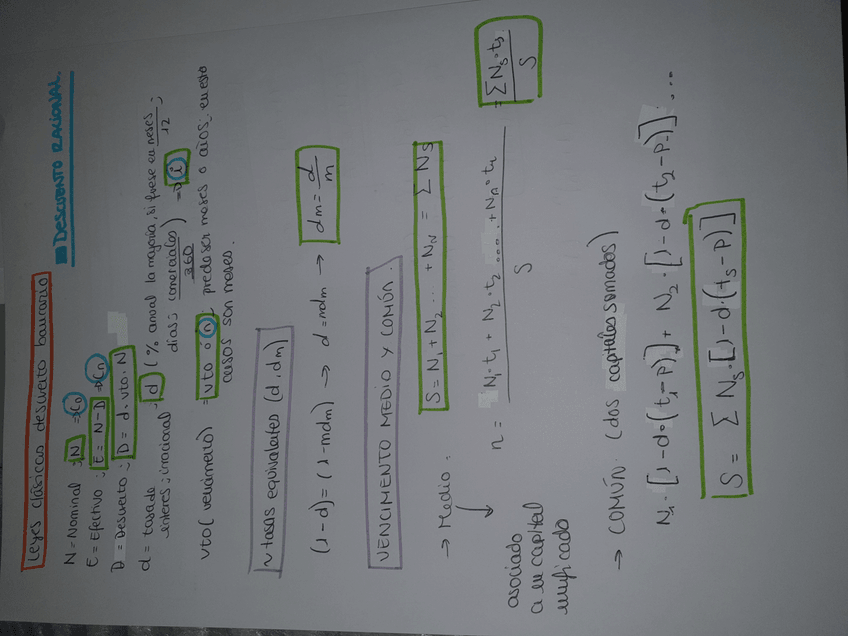 Leyes clásicas descuento bancario
■ DESCUENTO RACIONAL.
N = Nominal ; N => C0
E = Efectivo ; E = N-D => Cn
D = Descuento ; D = d · vto · N
d = tasa de interes ; irracional d ( % anual la mayoría, si fuese en meses/12 ;
días ; (comerciales)/360 ) => i
vto (vencimiento) = vto ó n ; puede ser meses o años ; en esto
casos son meses.
~ tasas equivalentes (d, dm)
(1-d) = (1-mdm) → d = mdm → dm = d/m
VENCIMENTO MEDIO Y COMÚN.
→ Medio : S = N1 + N2 ... + NN = ∑ NS
asociado
a un capital
unificado
n = N1·t1 + N2·t2 .... + Nn·tn / S = ∑ NS·tS / S
→ COMÚN. (dos capitales sumados)
N1·[1-d·(t1-P)] + N2·[1-d·(t2-P)] ...
S = ∑ NS·[1-d·(tS-P)]